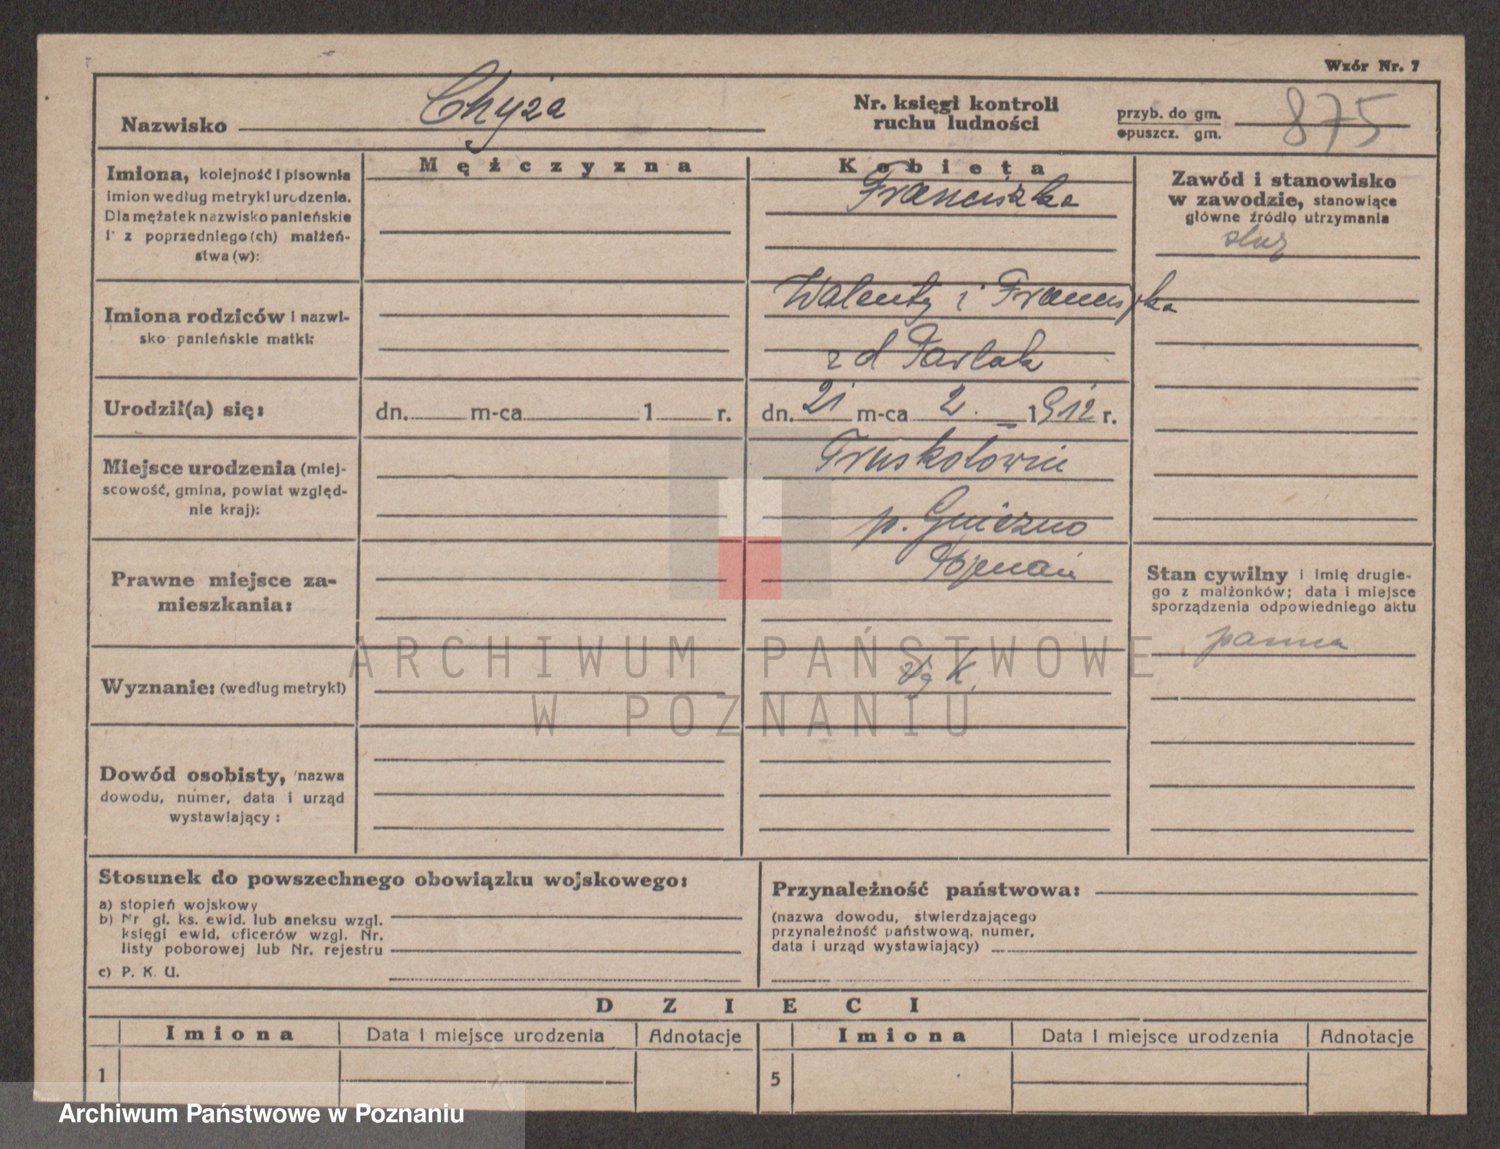 Wzór Nr. 7
Nazwisko Chyża
Nr. księgi kontroli
ruchu ludności
przyb. do gm.
opuszcz. gm.
875
Imiona, kolejność i pisownia
imion według metryki urodzenia.
Dla mężatek nazwisko panieńskie
i z poprzedniego(ch) małżeń-
stwa(w):
Mężczyzna
Kobieta
Franciszka
Zawód i stanowisko
w zawodzie, stanowiące
główne źródło utrzymania
służ
Imiona rodziców i nazwi-
sko panieńskie matki:
Walenty i Franciszka
z d Pawlak
Urodził(a) się:
dn. m-ca 1 r.
dn. 21 m-ca 2. 1912 r.
Miejsce urodzenia (miej-
scowość, gmina, powiat względ-
nie kraj):
p. Gniezno
Prawne miejsce za-
mieszkania:
Poznań
Stan cywilny i imię drugie-
go z małżonków; data i miejsce
sporządzenia odpowiedniego aktu
panna
Wyznanie: (według metryki)
Dowód osobisty, nazwa
dowodu, numer, data i urząd
wystawiający:
ARCHIWUM PAŃSTWOWE
W POZNANIU
Stosunek do powszechnego obowiązku wojskowego:
a) stopień wojskowy
b) Nr gł. ks. ewid. lub aneksu wzgl.
księgi ewid. oficerów wzgl. Nr.
listy poborowej lub Nr. rejestru
c) P. K. U.
Przynależność państwowa:
(nazwa dowodu, stwierdzającego
przynależność państwową, numer,
data i urząd wystawiający)
DZIECI
Imiona Data i miejsce urodzenia Adnotacje Imiona Data i miejsce urodzenia Adnotacje
1 5
Archiwum Państwowe w Poznaniu